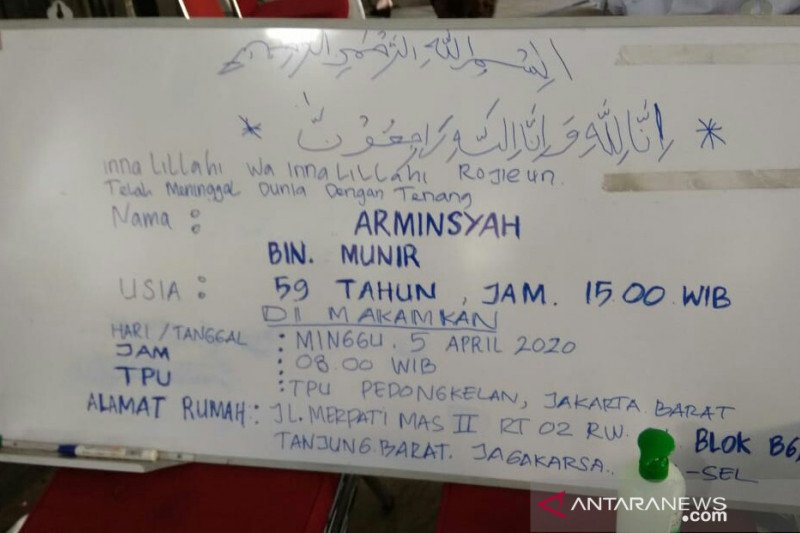 بسم الله الرحمن الرحيم
* انا لله وانا اليه راجعون *
inna Lillahi wa inna Lillahi Rojieun.
Telah Meninggal Dunia Dengan Tenang
Nama : ARMINSYAH
BIN. MUNIR
USIA : 59 TAHUN, JAM. 15.00 WIB
DI MAKAMKAN
HARI / TANGGAL : MINGGU. 5 APRIL 2020
JAM : 08.00 WIB
TPU : TPU PEDONGKELAN, JAKARTA BARAT
ALAMAT RUMAH : JL. MERPATI MAS II RT 02 RW. BLOK B6
TANJUNG BARAT. JAGAKARSA. -SEL
ANTARANEWS.com